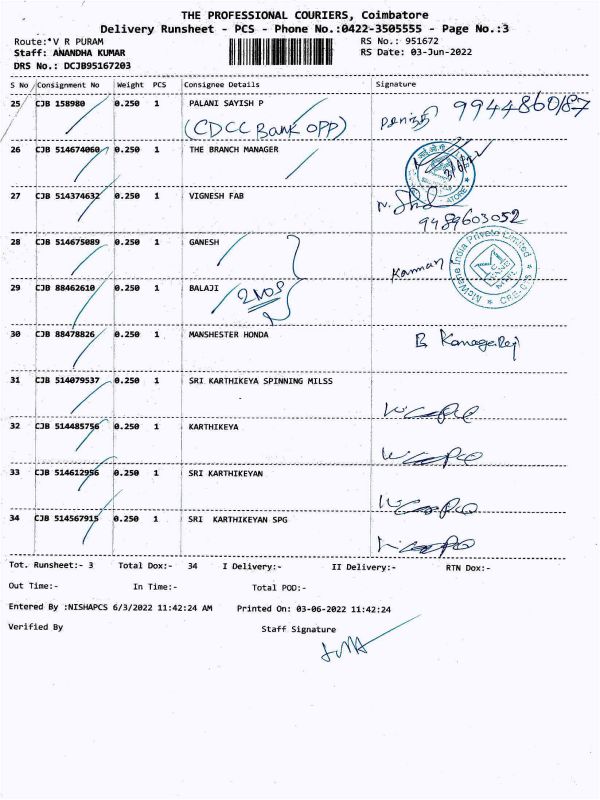 THE PROFESSIONAL COURIERS, Coimbatore
Delivery Runsheet - PCS - Phone No.:0422-3505555 - Page No.:3
Route:*V R PURAM RS No.: 951672
Staff: ANANDHA KUMAR RS Date: 03-Jun-2022
DRS No.: DCJB95167203
S No Consignment No Weight PCS Consignee Details Signature
25 CJB 158980 0.250 1 PALANI SAYISH P 9944860187
(CDCC Bank OPP)
26 CJB 514674060 0.250 1 THE BRANCH MANAGER
27 CJB 514374632 0.250 1 VIGNESH FAB
9489603052
28 CJB 514675089 0.250 1 GANESH Kannan
McWane India Private Limited
29 CJB 88462610 0.250 1 BALAJI 2NOS
30 CJB 88478826 0.250 1 MANSHESTER HONDA B Kanagaraj
31 CJB 514079537 0.250 1 SRI KARTHIKEYA SPINNING MILSS
32 CJB 514485756 0.250 1 KARTHIKEYA
33 CJB 514612956 0.250 1 SRI KARTHIKEYAN
34 CJB 514567915 0.250 1 SRI KARTHIKEYAN SPG
Tot. Runsheet:- 3 Total Dox:- 34 I Delivery:- II Delivery:- RTN Dox:-
Out Time:- In Time:- Total POD:-
Entered By :NISHAPCS 6/3/2022 11:42:24 AM Printed On: 03-06-2022 11:42:24
Verified By Staff Signature